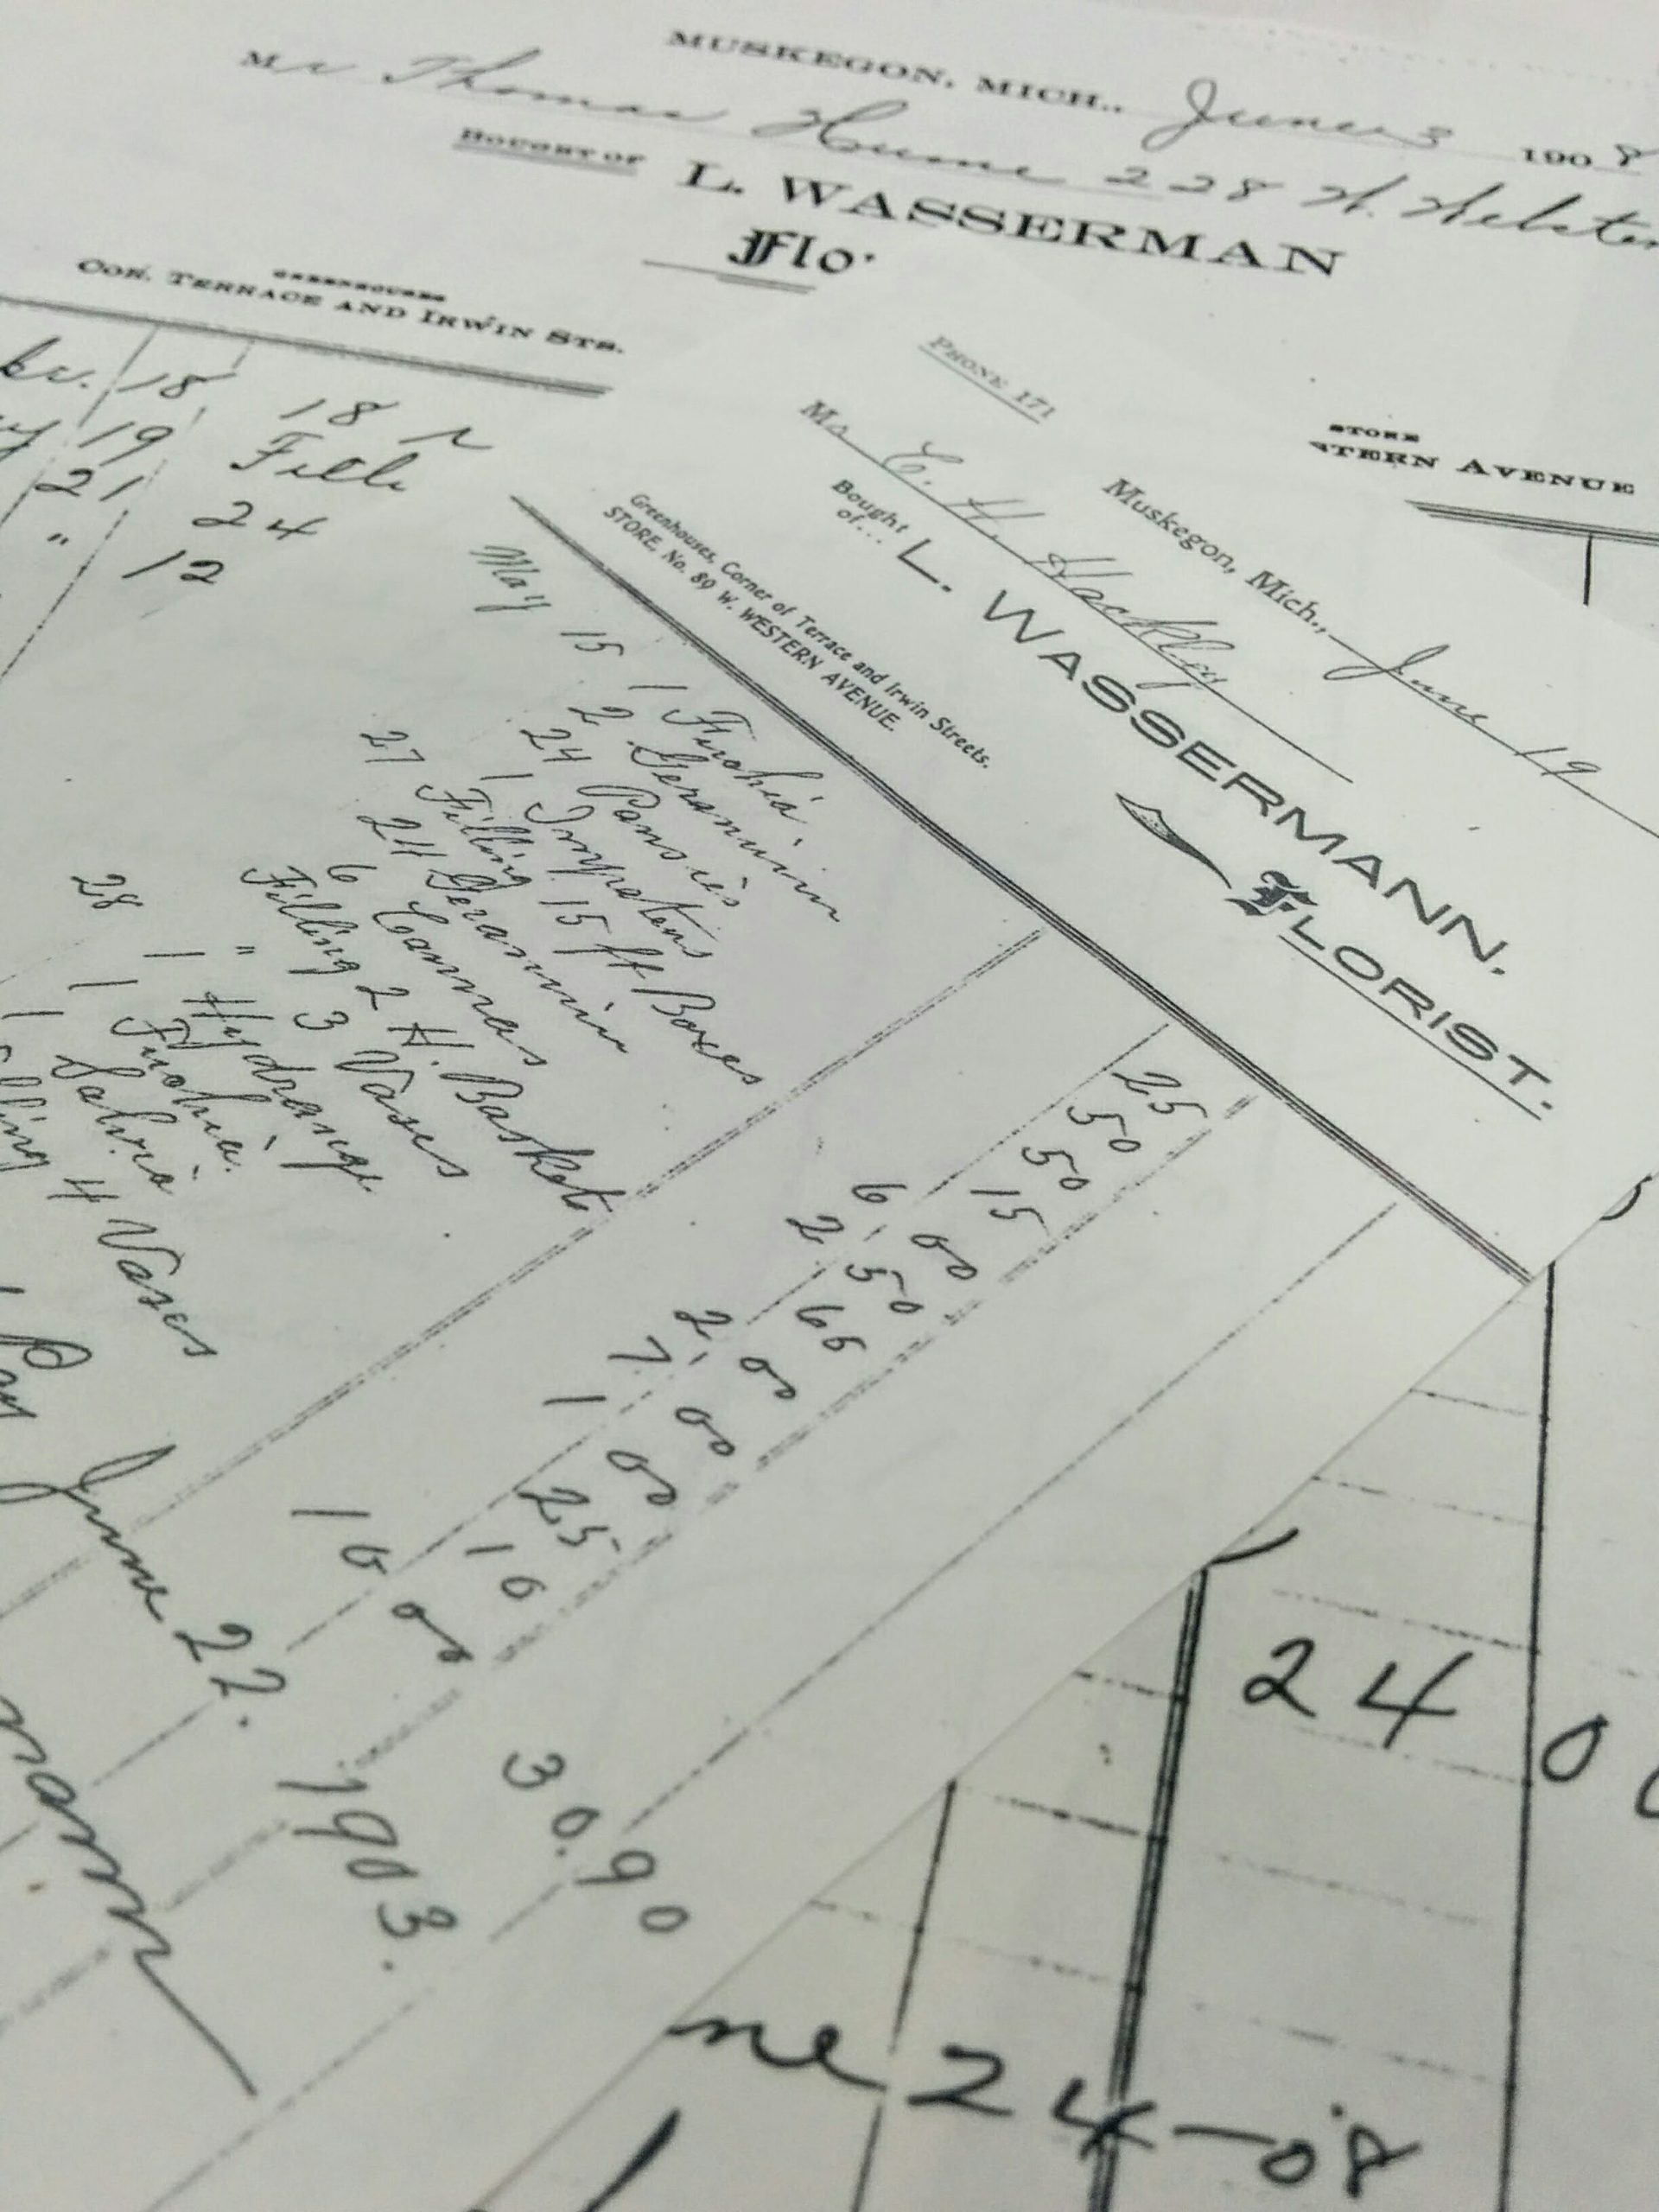 MUSKEGON, MICH., June 3 1908
Mr Thomas Hume 228 W. Webster
BOUGHT OF L. WASSERMAN
Flo
GREENHOUSES
COR. TERRACE AND IRWIN STS.
STORE
TERN AVENUE
PHONE 171
18 18
19 Fill
21 24
" 12
Muskegon, Mich., June 19
Mr E. H. Hackley
Bought of... L. WASSERMANN.
FLORIST.
Greenhouses, Corner of Terrace and Irwin Streets.
STORE, No. 89 W. WESTERN AVENUE.
May 15 1 Fuchia 25
2 Geranium 50
24 Pansies 50
1 Impatens 15
27 Filling 15 ft Boxes 6 00
24 Geranium 2 50
6 Cannas 66
Filling 2 H. Basket 2 00
28 " 3 Vases 7 00
1 Hydrange 1 00
1 Fuchia. 25
1 Salvia
4 Vases 10 00
30.90
June 22. 1903.
24 0
ne 24-08